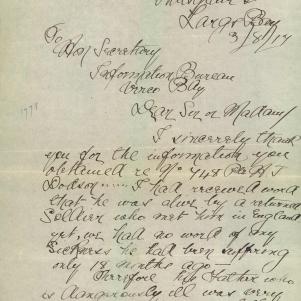 Largs Bay
3/8/17
To Hon Secretary
Information Bureau
1778
Dear Sir or Madam
I sincerely thank
you for the information you
obtained re No 748 Pte H J
Dodson I had received word
that he was alive by a returned
Soldier who met him in England
yet, we had no word of any
Sickness he had been suffering
only 18 months ago
Therefore his Father who
is dangerously ill was very